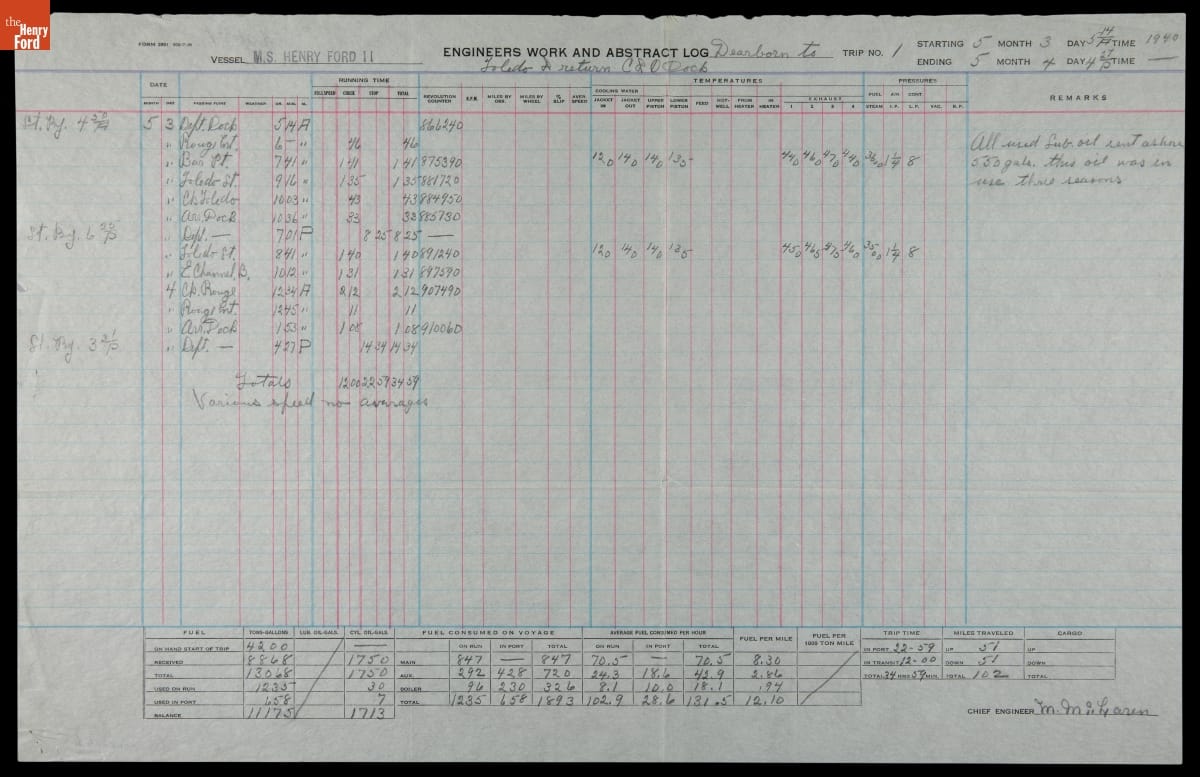 the Henry Ford
FORM 2901
VESSEL M.S. HENRY FORD II ENGINEERS WORK AND ABSTRACT LOG Dearborn to TRIP NO. 1 STARTING 5 MONTH 3 DAY 5 14/A TIME 1940
Toledo & return C & O Dock ENDING 5 MONTH 4 DAY 4 27/P TIME —
DATE RUNNING TIME TEMPERATURES PRESSURES
COOLING WATER EXHAUST REMARKS
MONTH DAY PASSING POINT WEATHER HR. MIN. M. FULL SPEED CHECK STOP TOTAL REVOLUTION COUNTER R.P.M. MILES BY OBS. MILES BY WHEEL % SLIP AVER. SPEED JACKET IN JACKET OUT UPPER PISTON LOWER PISTON FEED HOT-WELL FROM HEATER IN HEATER 1 2 3 4 FUEL STEAM AIR I.P. CONT. L.P. VAC. B.P.
St. By. 4 30/A 5 3 Dept. Dock 5 14 A 866240
" Rouge Ent. 6 — " 46 46
" Bar Pt. 7 41 " 1 41 1 41 875390 120 140 140 135 440 460 470 440 1 1/4 8
" Toledo St. 9 16 " 1 35 1 35 881720
" Ck. Toledo 10 03 " 43 43 884950
" Arr. Dock 10 36 " 33 33 885730
St. By. 6 " Dept. — 7 01 P 8 25 8 25 —
" Toledo St. 8 41 " 1 40 1 40 891240 120 140 140 135 450 465 470 460 1 1/4 8
" E. Channel B. 10 12 " 1 31 1 31 897590
4 Ck. Rouge 12 34 A 2 12 2 12 907490
" Rouge Ent. 12 45 " 11 11
" Arr. Dock 1 53 " 1 08 1 08 910060
St. By. 3 " Dept. — 4 27 P 14 34 14 34
Totals 12 00 22 59 34 59
Various speed no averages
All used Lub. oil sent ashore
550 gals. this oil was in
use three seasons
FUEL TONS-GALLONS LUB. OIL-GALS. CYL. OIL-GALS.
ON HAND START OF TRIP 4200 —
RECEIVED 8868 1750
TOTAL 13068 1750
USED ON RUN 1235 30
USED IN PORT 658 7
BALANCE 11175 1713
FUEL CONSUMED ON VOYAGE AVERAGE FUEL CONSUMED PER HOUR FUEL PER MILE FUEL PER 1000 TON MILE
ON RUN IN PORT TOTAL ON RUN IN PORT TOTAL
MAIN 847 — 847 70.5 — 70.5 8.30
AUX. 292 428 720 24.3 18.6 42.9 2.86
BOILER 96 230 326 8.1 10.0 18.1 .94
TOTAL 1235 658 1893 102.9 28.6 131.5 12.10
TRIP TIME MILES TRAVELED CARGO
IN PORT 22-59 UP 51 UP
IN TRANSIT 12-00 DOWN 51 DOWN
TOTAL 34 HRS 59 MIN. TOTAL 102 TOTAL
CHIEF ENGINEER M. McLaren